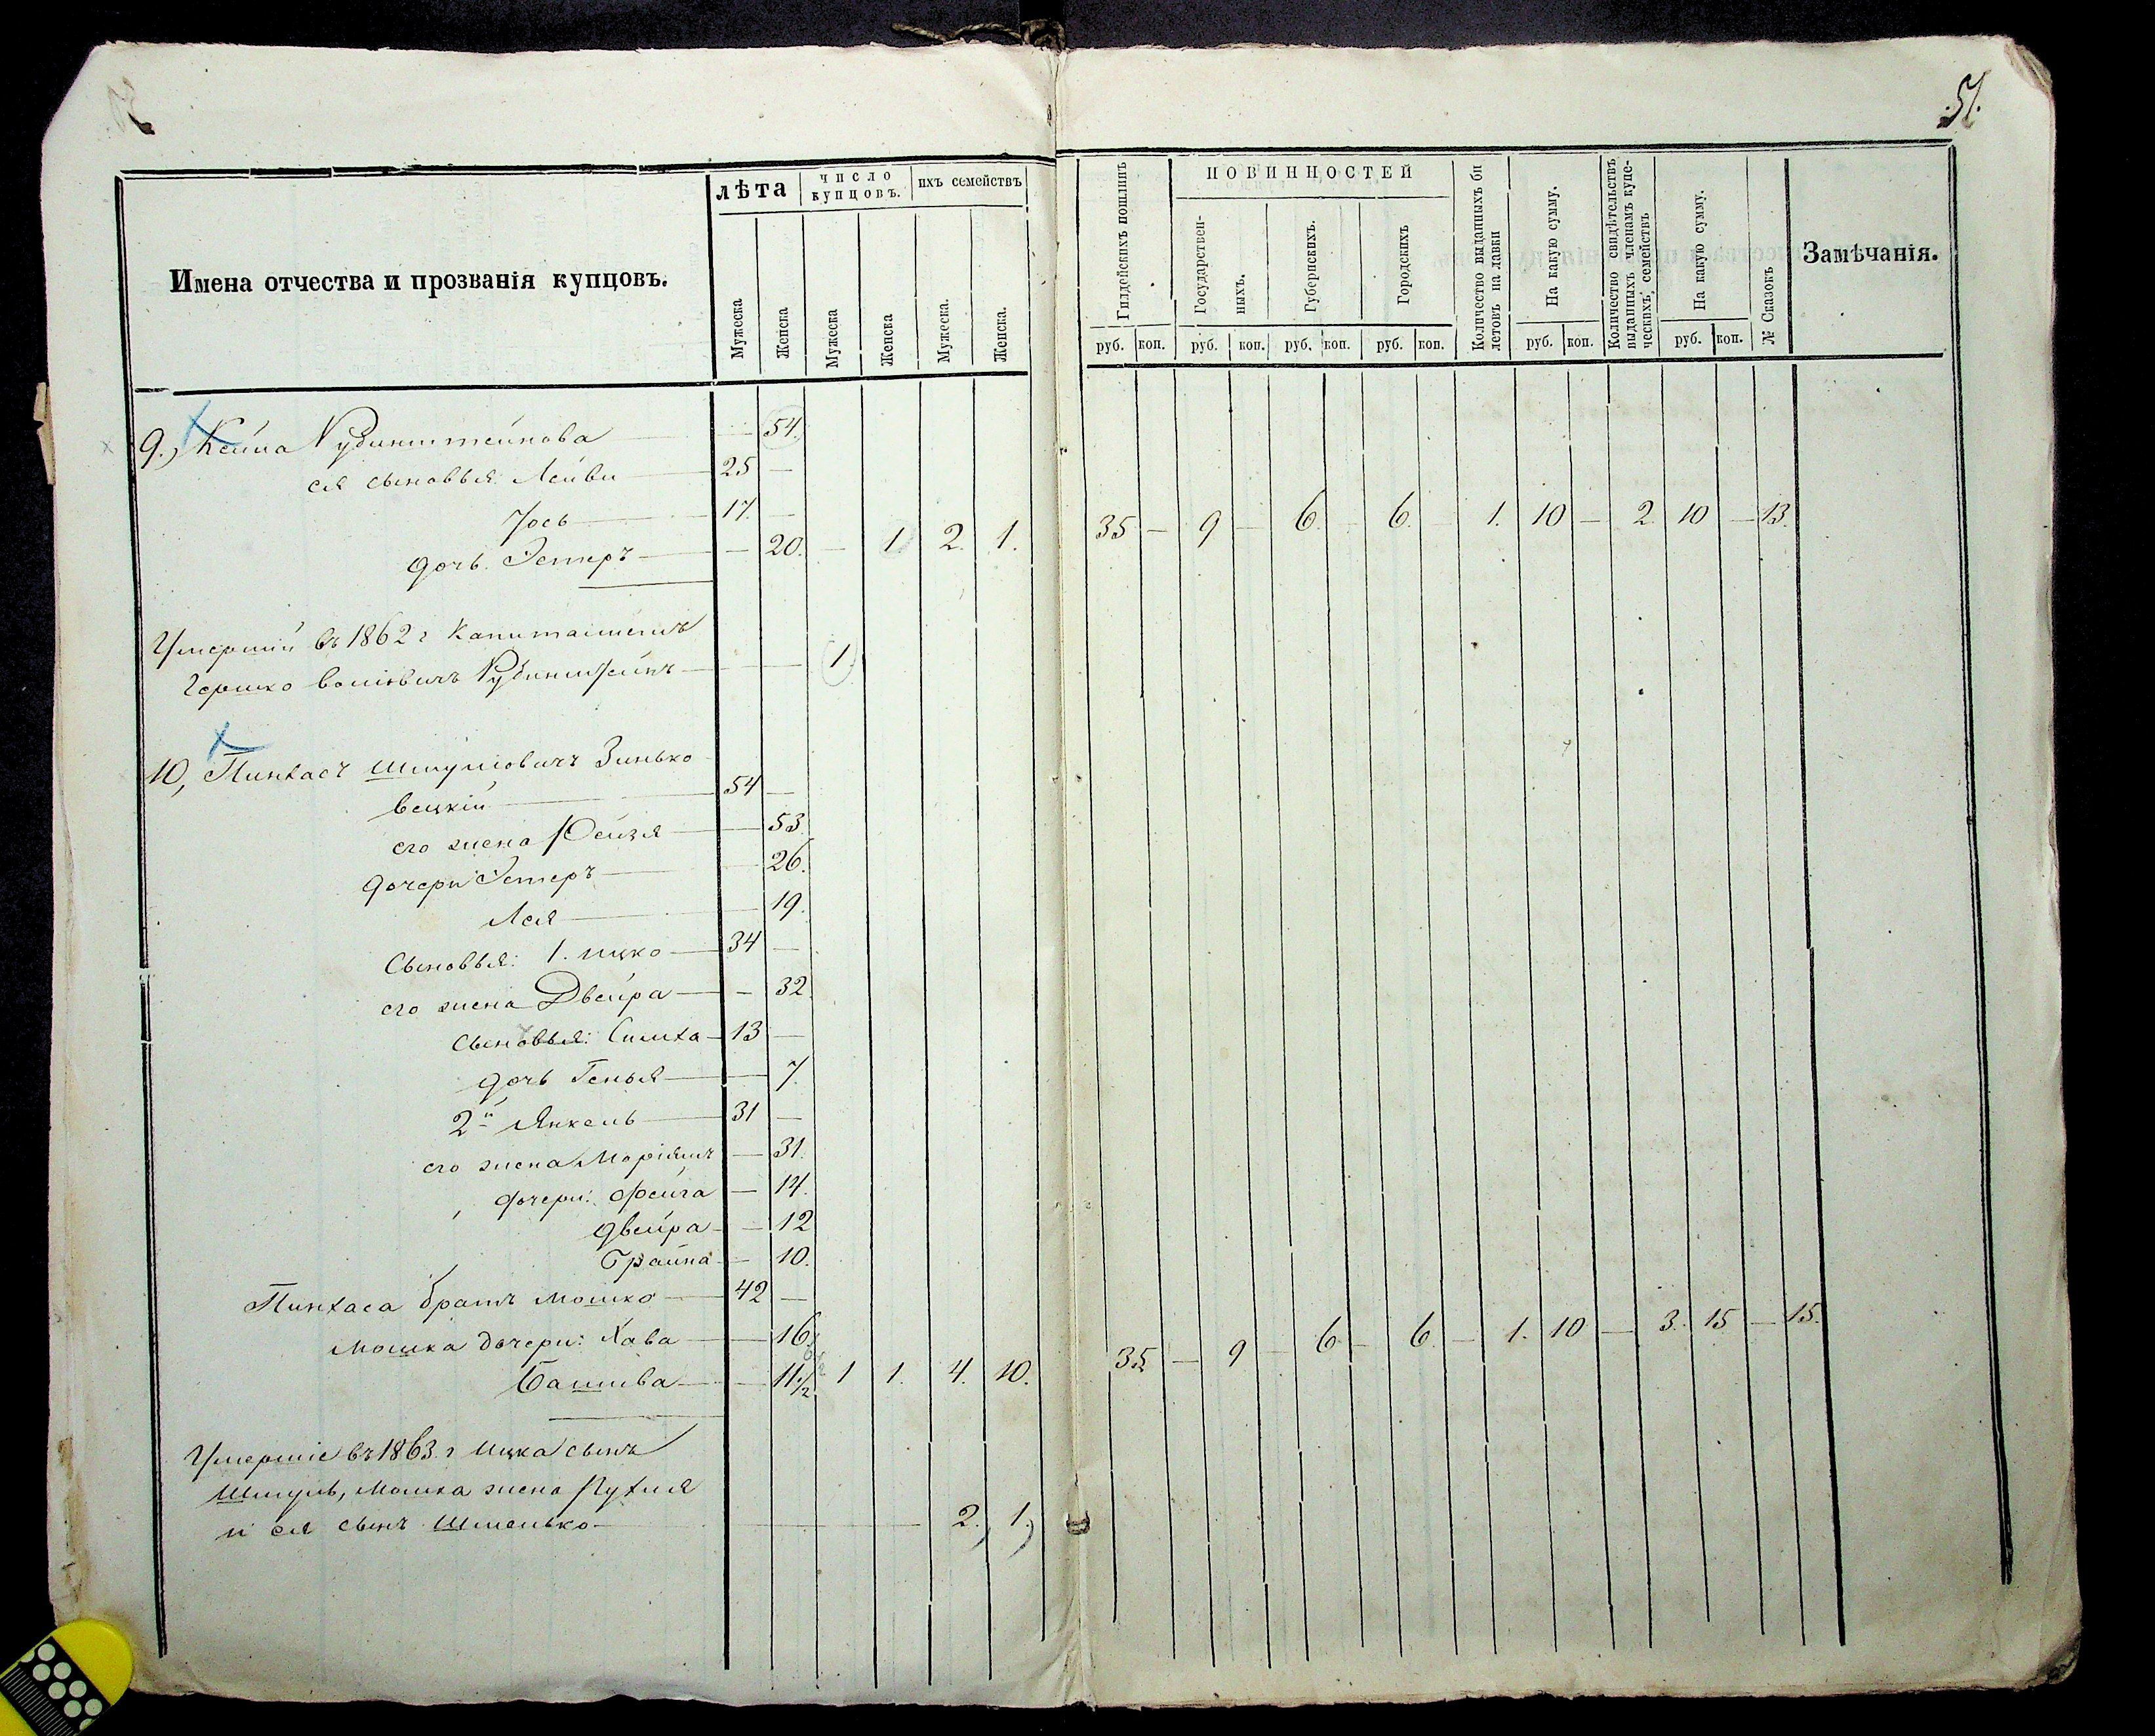 51.
Имена отчества и прозванія купцовъ.
лѣта
число купцовъ.
ихъ семействъ
Мужеска
Женска
Мужеска
Женска
Мужеска.
Женска.
Гилдейскихъ пошлинъ
ПОВИННОСТЕЙ
Государственныхъ.
Губернскихъ.
Городскихъ
Количество выданныхъ билетовъ на лавки
На какую сумму.
Количество свидѣтельствъ выданныхъ членамъ купеческихъ семействъ
На какую сумму.
№ Сказокъ
Замѣчанія.
руб. коп. руб. коп. руб. коп. руб. коп. руб. коп. руб. коп.
9.) Кейла Рубинштейнова — 54.
ея сыновья: Лейви 25 —
Іось 17. —
дочь Эстеръ — 20. — 1 2. 1. 35 — 9 — 6. — 6. — 1. 10 — 2. 10 — 13.
Умершій въ 1862 г Капиталистъ
Гершко Рубинштейнъ — — 1
10, Пинхасъ Шмуліовичъ Зинько
вецкій 54 —
его жена — 53.
дочери Эстеръ — 26.
Лея — 19.
Сыновья: 1. Ицко 34 —
его жена Двейра — 32.
Сыновья: Симха 13 —
дочь Генья — 7.
2й Янкель 31 —
его жена Маріямъ — 31.
дочери: Фейга — 14.
Двейра — 12
Брайна — 10.
Пинхаса братъ Мошко 42 —
Мошка дочери: Хава — 16.
Башива — 11 1/2 1 1. 4. 10. 35 — 9 — 6 — 6. — 1. 10 — 3. 15 — 15.
Умершіе въ 1863. г Ицка сынъ
Шмуль, Мошка жена Рухля
и ея сынъ Шменько — 2.) 1.)